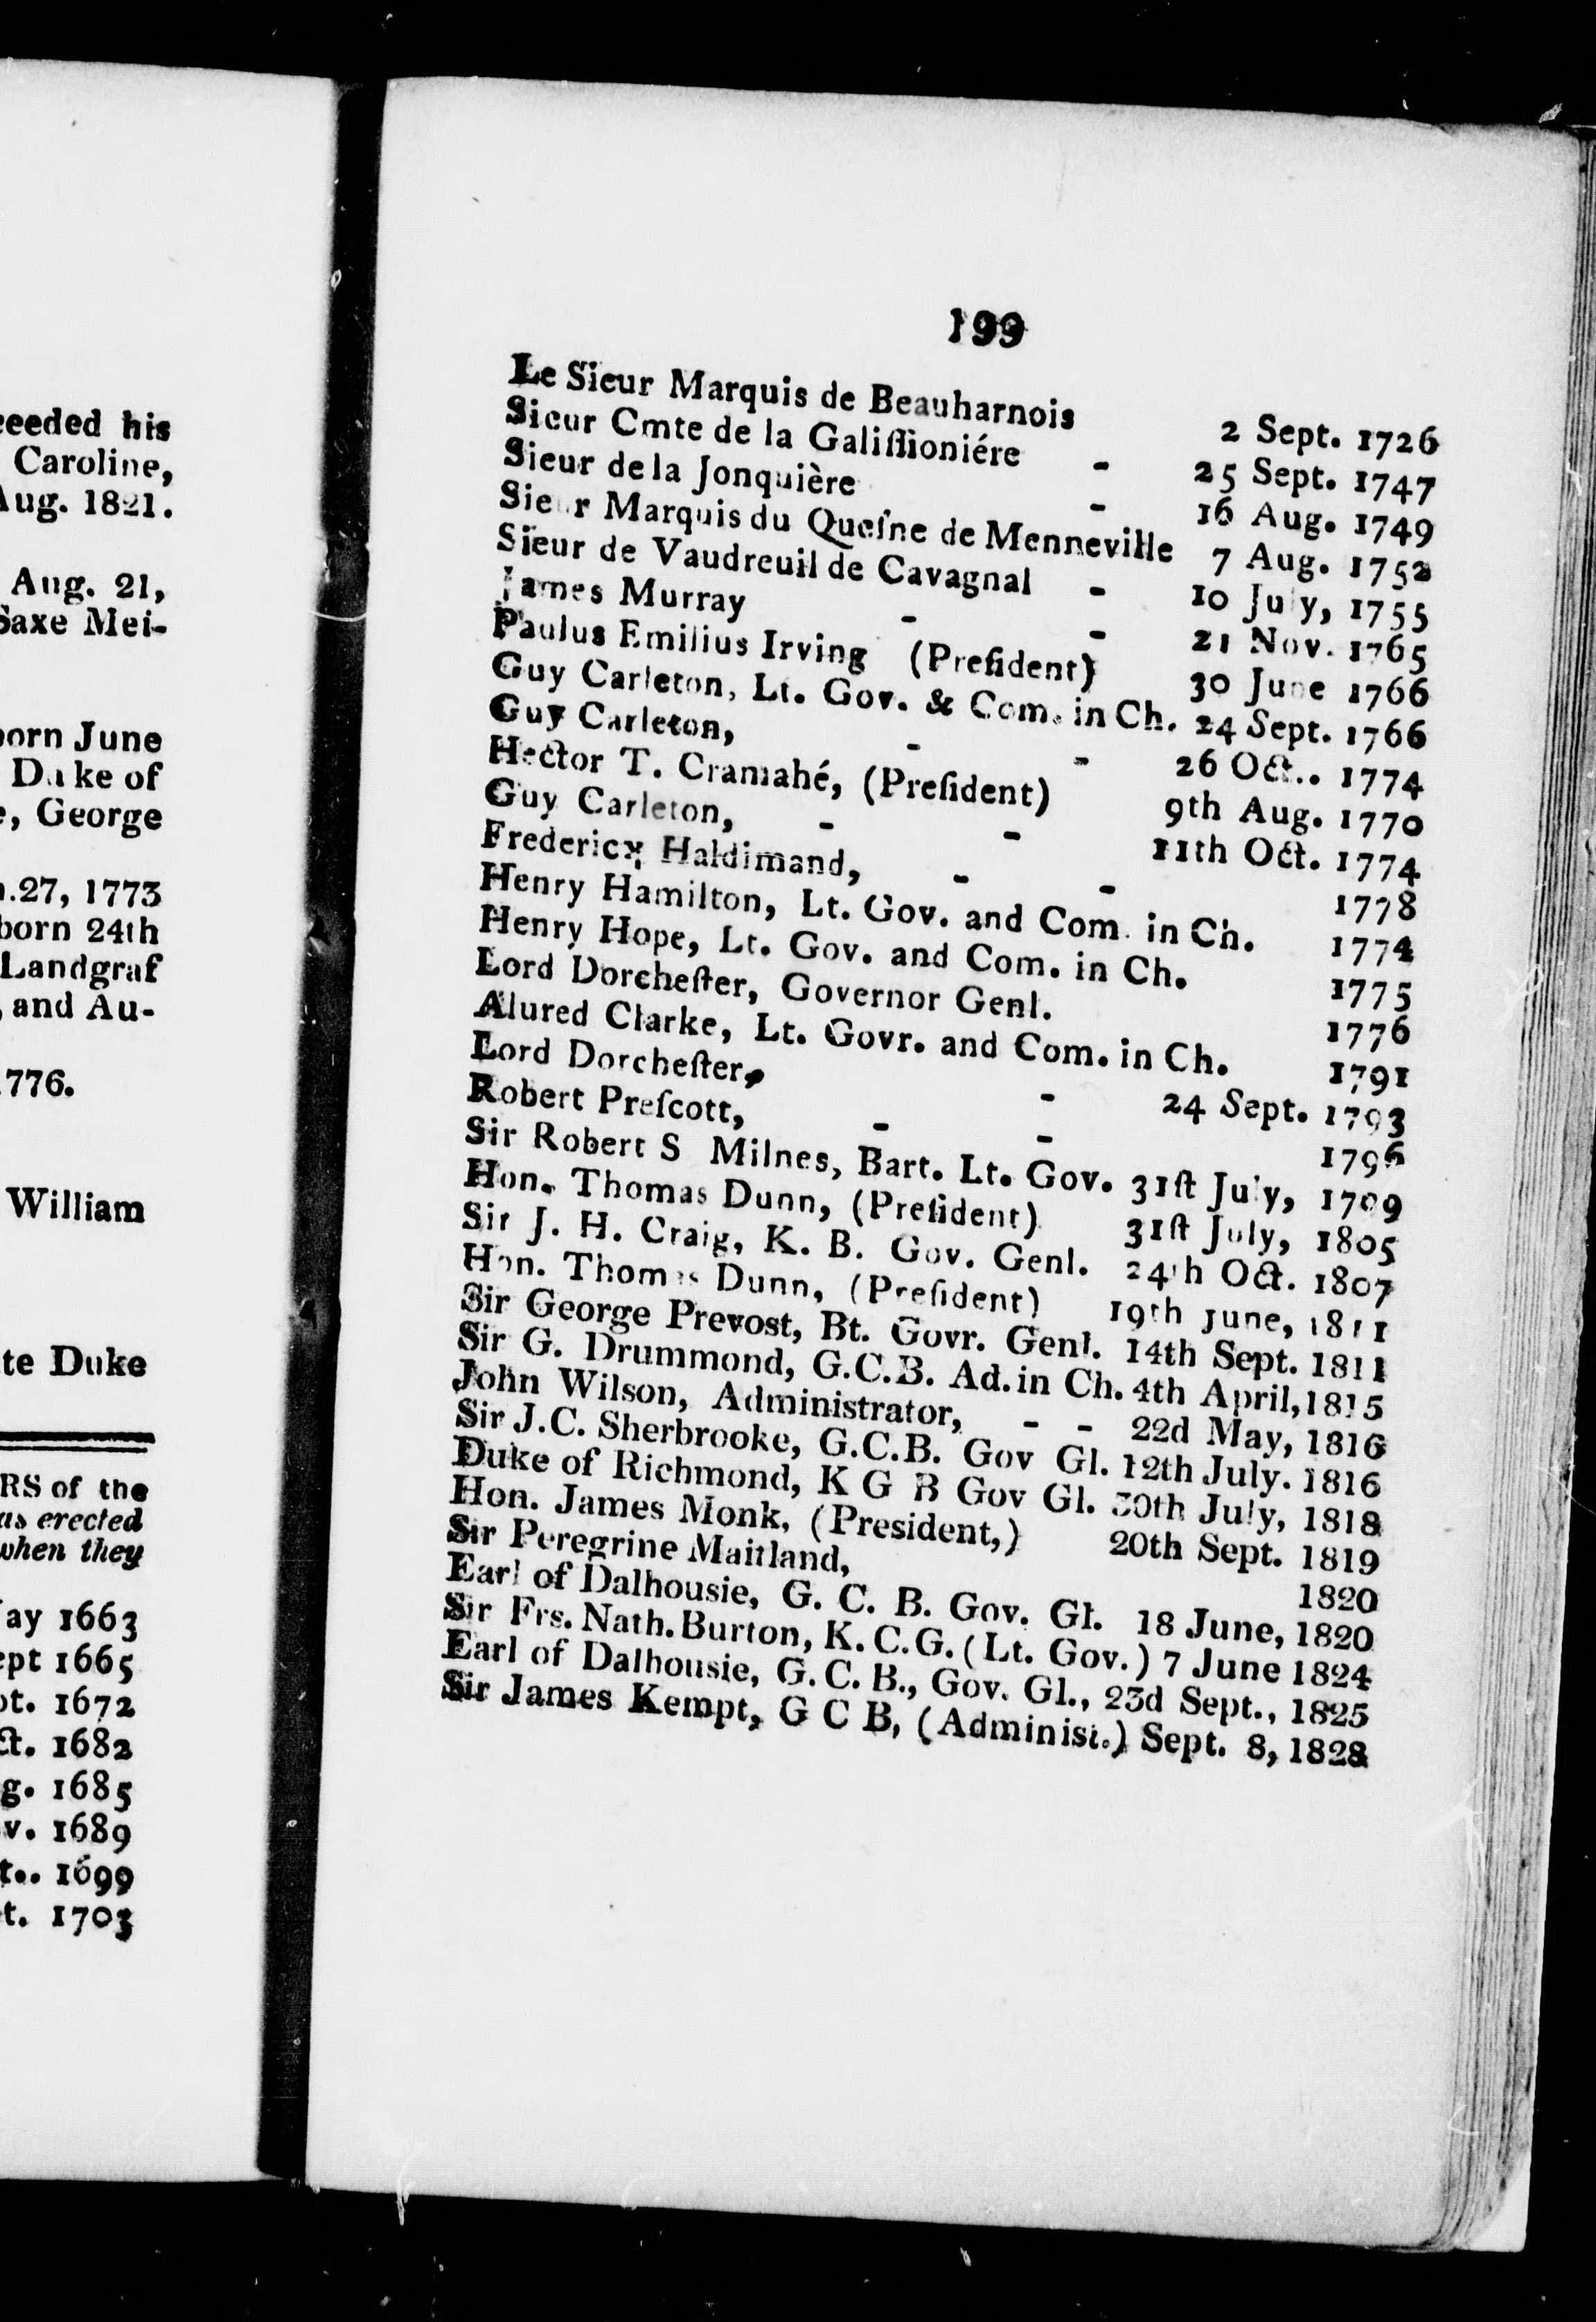 ceeded his
Caroline,
Aug. 1821.
Aug. 21,
Saxe Mei-
born June
Duke of
e, George
n.27, 1773
born 24th
Landgraf
, and Au-
1776.
William
te Duke
RS of the
as erected
when they
May 1663
ept 1665
pt. 1672
ct. 1682
g. 1685
v. 1689
t.. 1699
t. 1703
199
Le Sieur Marquis de Beauharnois 2 Sept. 1726
Sieur Cmte de la Galiſſioniére - 25 Sept. 1747
Sieur de la Jonquière - 16 Aug. 1749
Sieur Marquis du Queſne de Menneville 7 Aug. 1752
Sieur de Vaudreuil de Cavagnal - 10 July, 1755
James Murray - - 21 Nov. 1765
Paulus Emilius Irving (Preſident) 30 June 1766
Guy Carleton, Lt. Gov. & Com. in Ch. 24 Sept. 1766
Guy Carleton, - - 26 Oct.. 1774
Hector T. Cramahé, (Preſident) 9th Aug. 1770
Guy Carleton, - - 11th Oct. 1774
Frederick Haldimand, - - 1778
Henry Hamilton, Lt. Gov. and Com. in Ch. 1774
Henry Hope, Lt. Gov. and Com. in Ch. 1775
Lord Dorcheſter, Governor Genl. 1776
Alured Clarke, Lt. Govr. and Com. in Ch. 1791
Lord Dorcheſter, - 24 Sept. 1793
Robert Preſcott, - - 1796
Sir Robert S Milnes, Bart. Lt. Gov. 31ſt July, 1799
Hon. Thomas Dunn, (Preſident) 31ſt July, 1805
Sir J. H. Craig, K. B. Gov. Genl. 24th Oct. 1807
Hon. Thomas Dunn, (Preſident) 19th june, 1811
Sir George Prevost, Bt. Govr. Genl. 14th Sept. 1811
Sir G. Drummond, G.C.B. Ad. in Ch. 4th April, 1815
John Wilson, Administrator, - - 22d May, 1816
Sir J.C. Sherbrooke, G.C.B. Gov Gl. 12th July. 1816
Duke of Richmond, K G B Gov Gl. 30th July, 1818
Hon. James Monk, (President,) 20th Sept. 1819
Sir Peregrine Maitland, 1820
Earl of Dalhousie, G. C. B. Gov. Gl. 18 June, 1820
Sir Frs. Nath. Burton, K. C. G. (Lt. Gov.) 7 June 1824
Earl of Dalhousie, G. C. B., Gov. Gl., 23d Sept., 1825
Sir James Kempt, G C B, (Administ.) Sept. 8, 1828